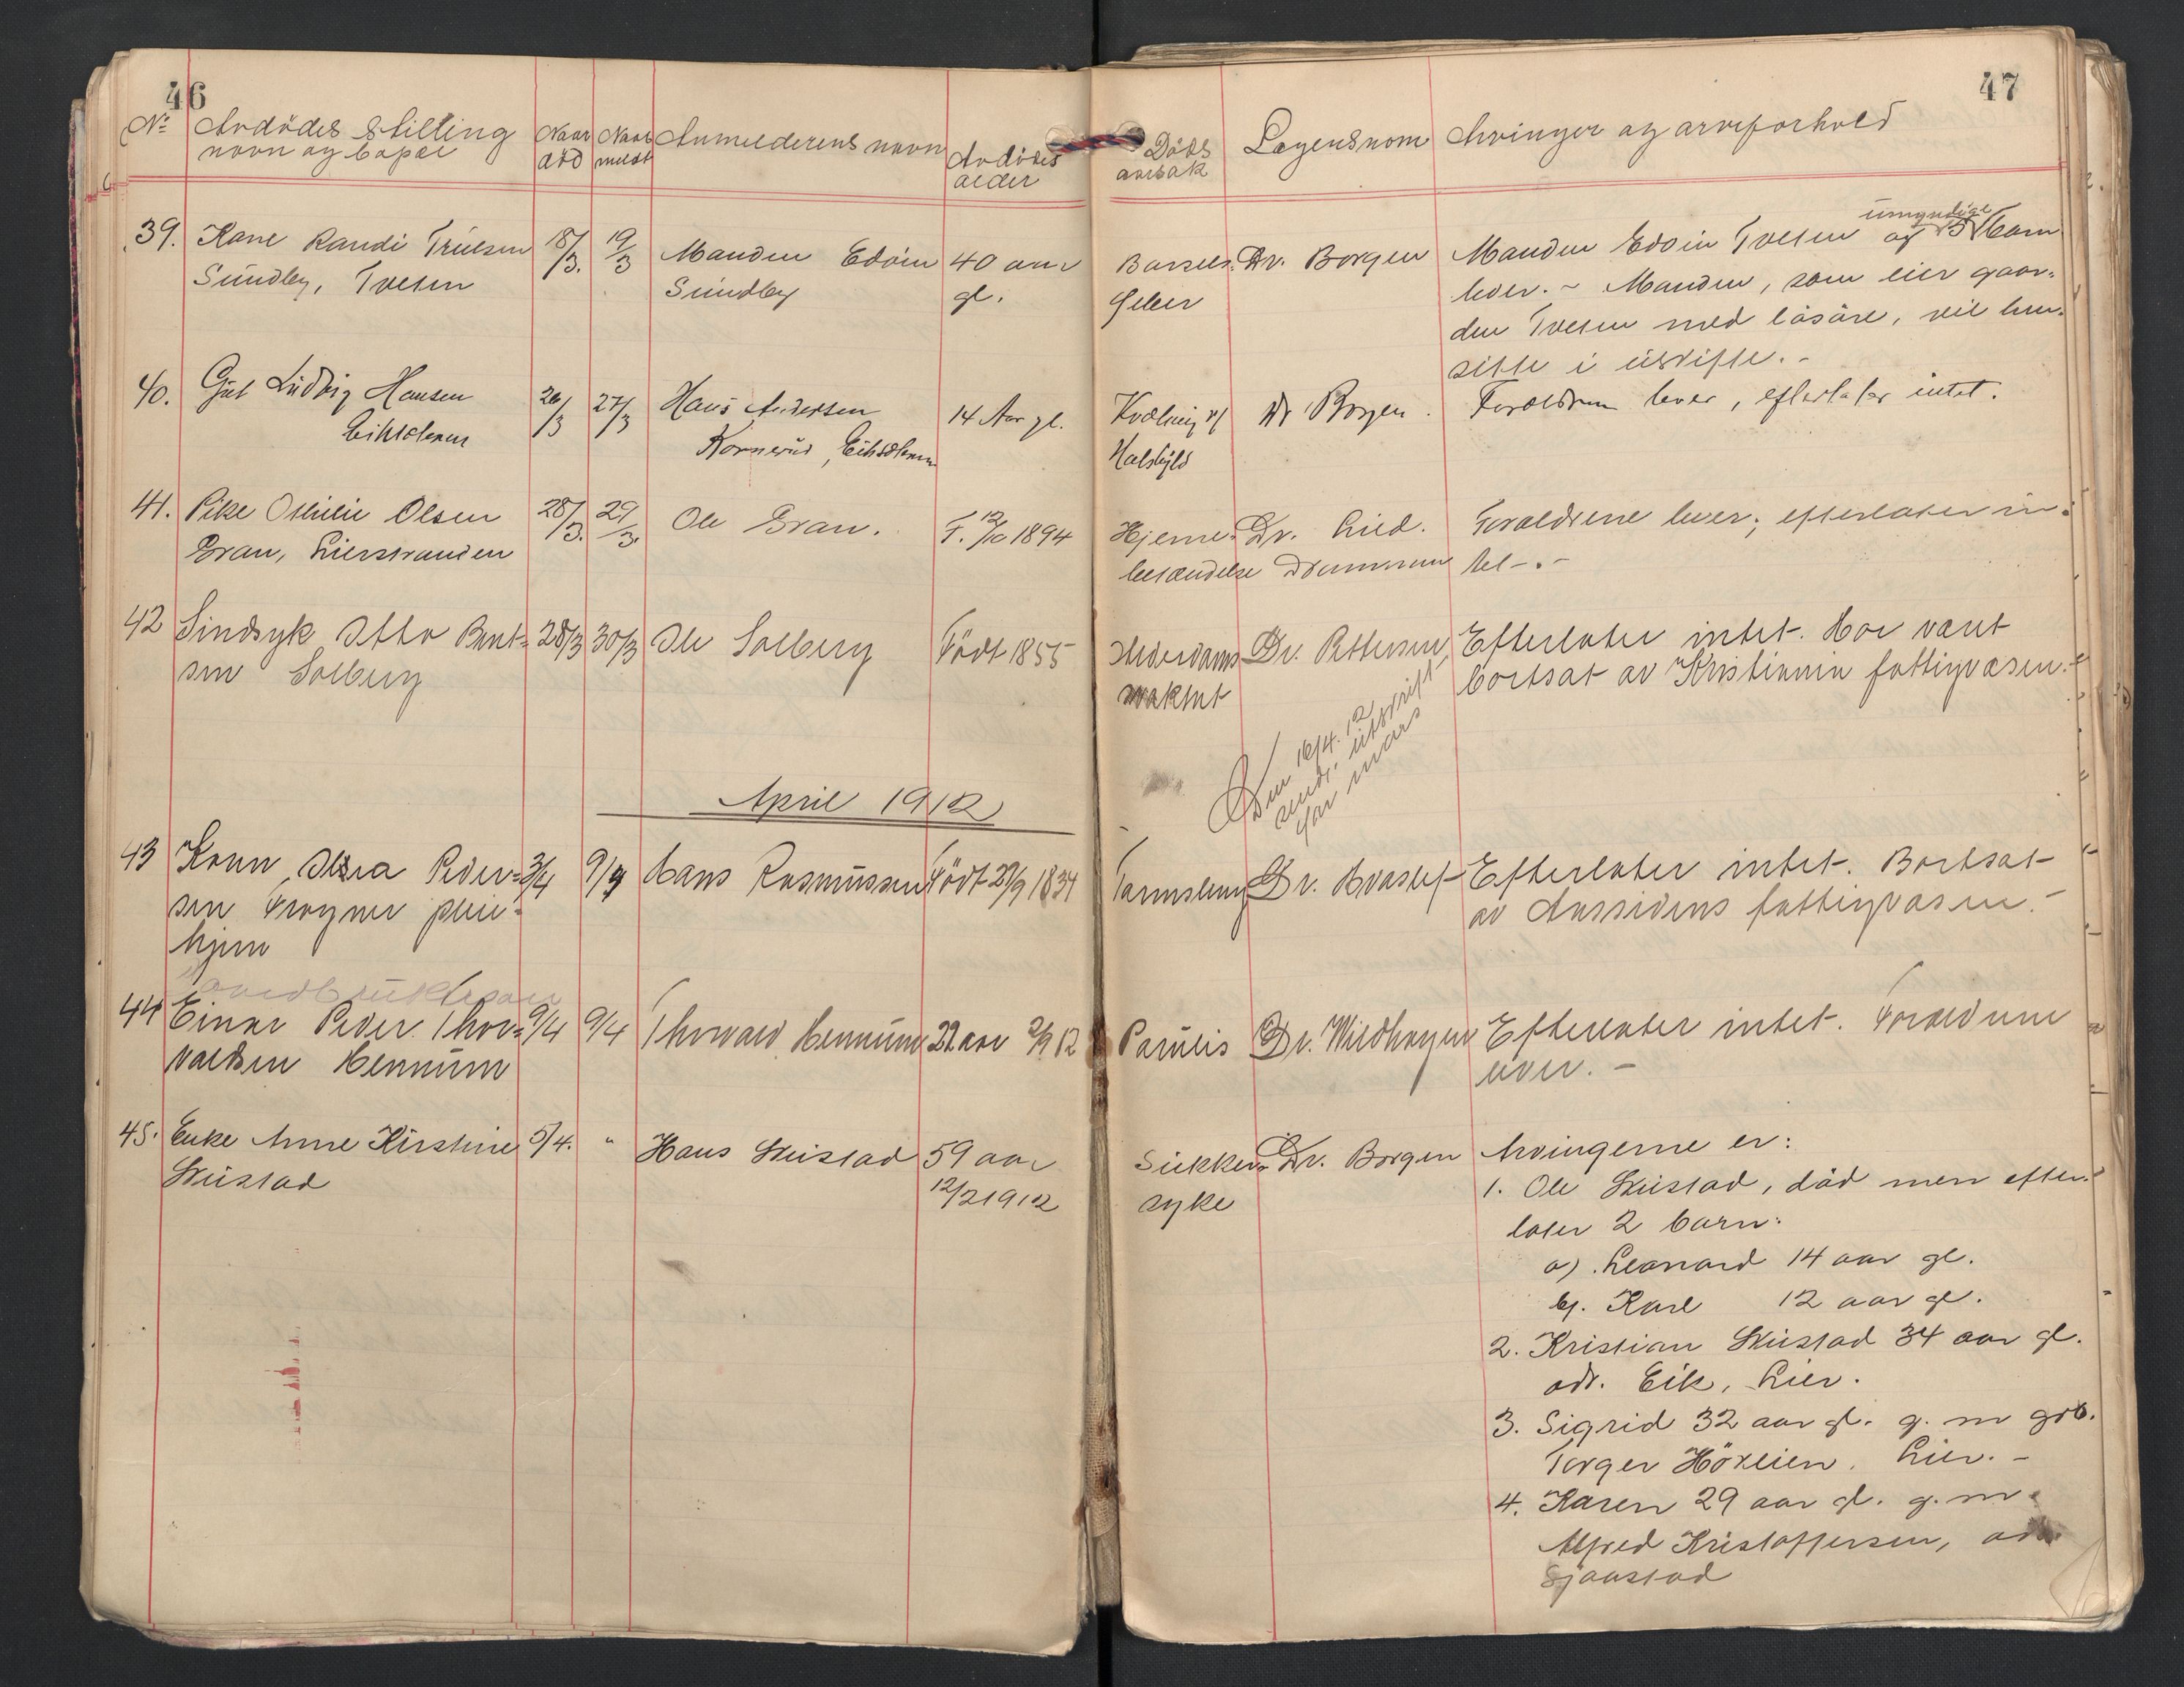 46
No Avdödes stilling
navn og bopæl
Naar
död
Naar
meldt
Anmelderens navn
Avdödes
alder
39. Kone Randi Truelsen
Sundby, Tveten
18/3.
19/3
Manden Edvin
Sundby
40 aar
gl.
40. Gut Ludvig Hansen
Eiksdlenen
26/3
27/3
Hans Andersen
Kornerud, Eiksdlenen
14 Aar gl.
41. Pike Othilie Olsen
Gran, Lierstranden
28/3.
29/3.
Ole Gran.
F. 12/10 1894
42 Sindsyk Otto Bent-
sen Solberg
28/3
30/3
Ole Solberg
Född 1855
April 1912
43 Kone, Olea Peder-
sen Frogner pleie-
hjem
3/4
9/4
Hans Rasmussen
Född 29/9 1834
44 Einar Peder Thor-
valdsen Hennum
9/4
9/4
Thorvald Hennum
22 aar 2/9 12
45. Enke Anne Kirstine
Skustad
5/4.
"
Hans Skustad
59 aar
12/2 1912
47
Döds
aarsak
Lægens navn
Arvinger og arveforhold
Barsel-
feber
Dr. Borgen
umyndige
Manden Edvin Tveten og 5 barn
lever. - Manden, som eier gaar-
den Tveten med løsøre, vil hen-
sitte i uskifte. -
Kvælning v/
Halsbyld
Dr Borgen.
Forældrene lever, efterlater intet.
Hjerne-
betændelse
Dr. Lied.
Drammen
Forældrene lever; efterlater in-
tet -.-
Alderdoms-
svakhet
Dr. Pettersen
Efterlater intet. Har været
bortsat av Kristiania fattigvæsen. -
Den 16/4. 12
sendt utskrift
for mars
Tarmslyng
Dr. Kvasles
Efterlater intet. Bortsat
av Aassidens fattigvæsen. -
Paralis
Dr. Wildhagen
Efterlater intet. Forældrene
lever. -
Sukker-
syke
Dr. Borgen
Arvingerne er:
1. Ole Skustad, död men efter-
later 2 barn:
a). Leonard 14 aar gl.
b). Karl 12 aar gl.
2. Kristian Skustad 34 aar gl.
adr. Eik, Lier.
3. Sigrid 32 aar gl. g. m grb.
Torger Höxeien. Lier. -
4. Karen 29 aar gl. g. m.
Alfred Kristoffersen, adr.
Sjaastad